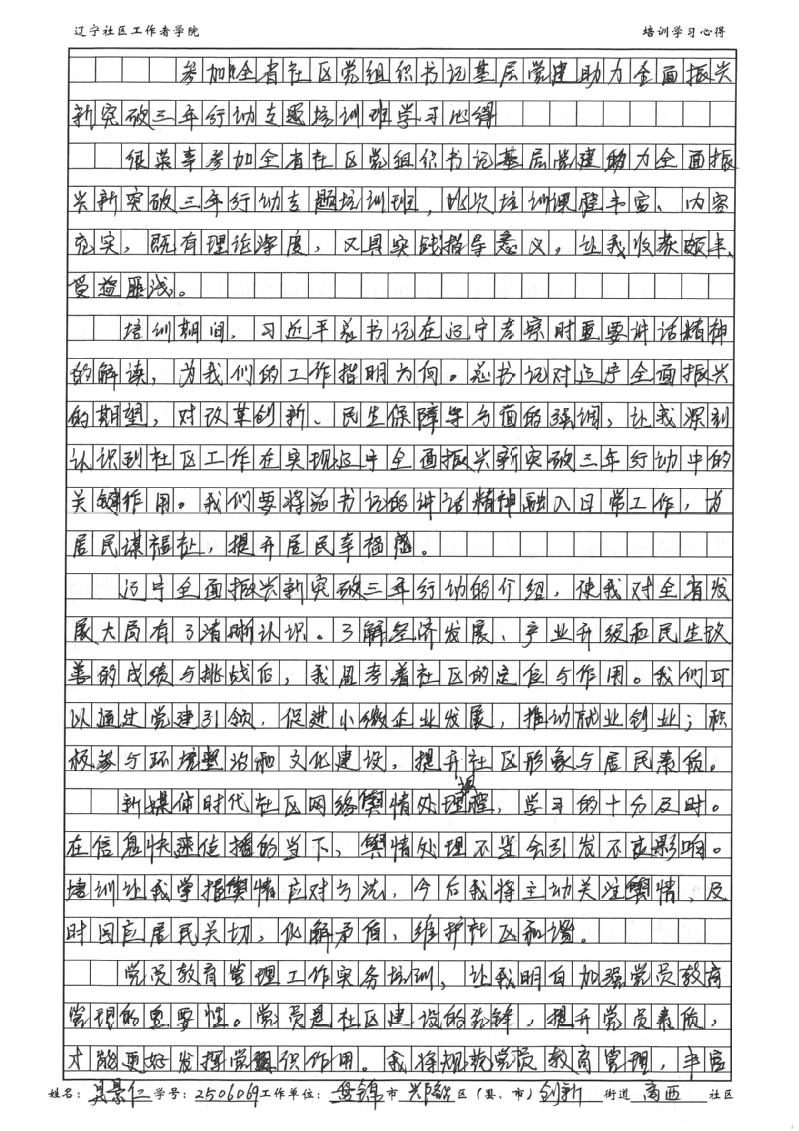 辽宁社区工作者学院 培训学习心得
参加全省社区党组织书记基层党建助力全面振兴
新突破三年行动专题培训班学习心得
很荣幸参加全省社区党组织书记基层党建助力全面振
兴新突破三年行动专题培训班，此次培训课程丰富、内容
充实，既有理论深度，又具实践指导意义，让我收获颇丰、
受益匪浅。
培训期间，习近平总书记在辽宁考察时重要讲话精神
的解读，为我们的工作指明方向。总书记对辽宁全面振兴
的期望，对改革创新、民生保障等方面的强调，让我深刻
认识到社区工作在实现辽宁全面振兴新突破三年行动中的
关键作用。我们要将总书记的讲话精神融入日常工作，为
居民谋福祉，提升居民幸福感。
辽宁全面振兴新突破三年行动的介绍，使我对全省发
展大局有了清晰认识。了解经济发展、产业升级和民生改
善的成绩与挑战后，我思考着社区的定位与作用。我们可
以通过党建引领，促进小微企业发展，推动就业创业；积
极参与环境整治和文化建设，提升社区形象与居民素质。
新媒体时代社区网络舆情处理课程，学习的十分及时。
在信息快速传播的当下，舆情处理不当会引发不良影响。
培训让我学握舆情应对方法，今后我将主动关注舆情，及
时回应居民关切，化解矛盾，维护社区和谐。
党员教育管理工作实务培训，让我明白加强党员教育
管理的重要性。党员是社区建设的先锋，提升党员素质，
才能更好发挥党组织作用。我将规范党员教育管理，丰富
姓名：吴景仁 学号：2506069 工作单位：盘锦 市 兴隆台 区（县、市）创新 街道 商西 社区